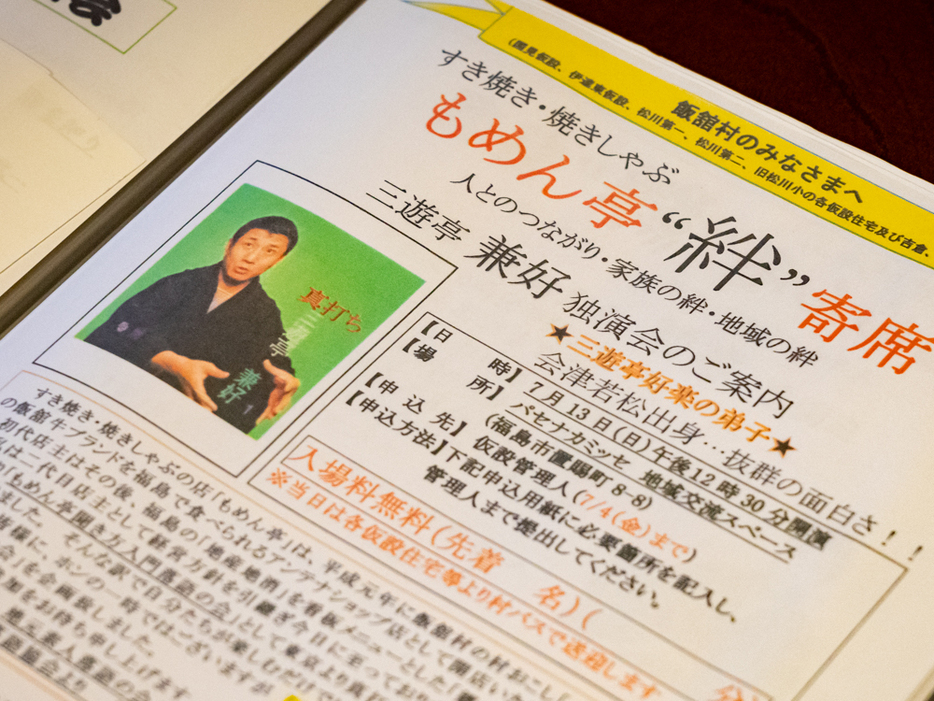 会
飯舘村のみなさまへ
(国見仮設、伊達東仮設、松川第一、松川第二、旧松川小の各仮設住宅及び吉倉、
すき焼き・焼きしゃぶ
もめん亭“絆”寄席
人とのつながり・家族の絆・地域の絆
三遊亭 兼好 独演会のご案内
★三遊亭好楽の弟子★
会津若松出身…抜群の面白さ！！
真打ち
三遊亭
兼好
【日 時】7月13日(日)午後12時30分開演
【場 所】パセナカミッセ 地域交流スペース
(福島市置賜町8-8)
【申込先】仮設管理人(7/4(金)まで)
【申込方法】下記申込用紙に必要箇所を記入し、
管理人まで提出してください。
入場料無料(先着 名)(
※当日は各仮設住宅等より村バスで送迎します
すき焼き・焼きしゃぶの店「もめん亭」は、平成元年に飯舘村の村おこし
の飯舘牛ブランドを福島で食べられるアンテナショップ店として開店い
初代店主はその後、福島の「地産地酒」を看板メニューとした
は二代目店主として経営方針を引継ぎ今日に至っており
「もめん亭聞き方入門落語の会」として東京より真打
ました。
そんな訳で自分たちが楽しむだけで
皆様に、ホンの一時ではございますが
会」を企画致しました。
加をお待ち申し上げます